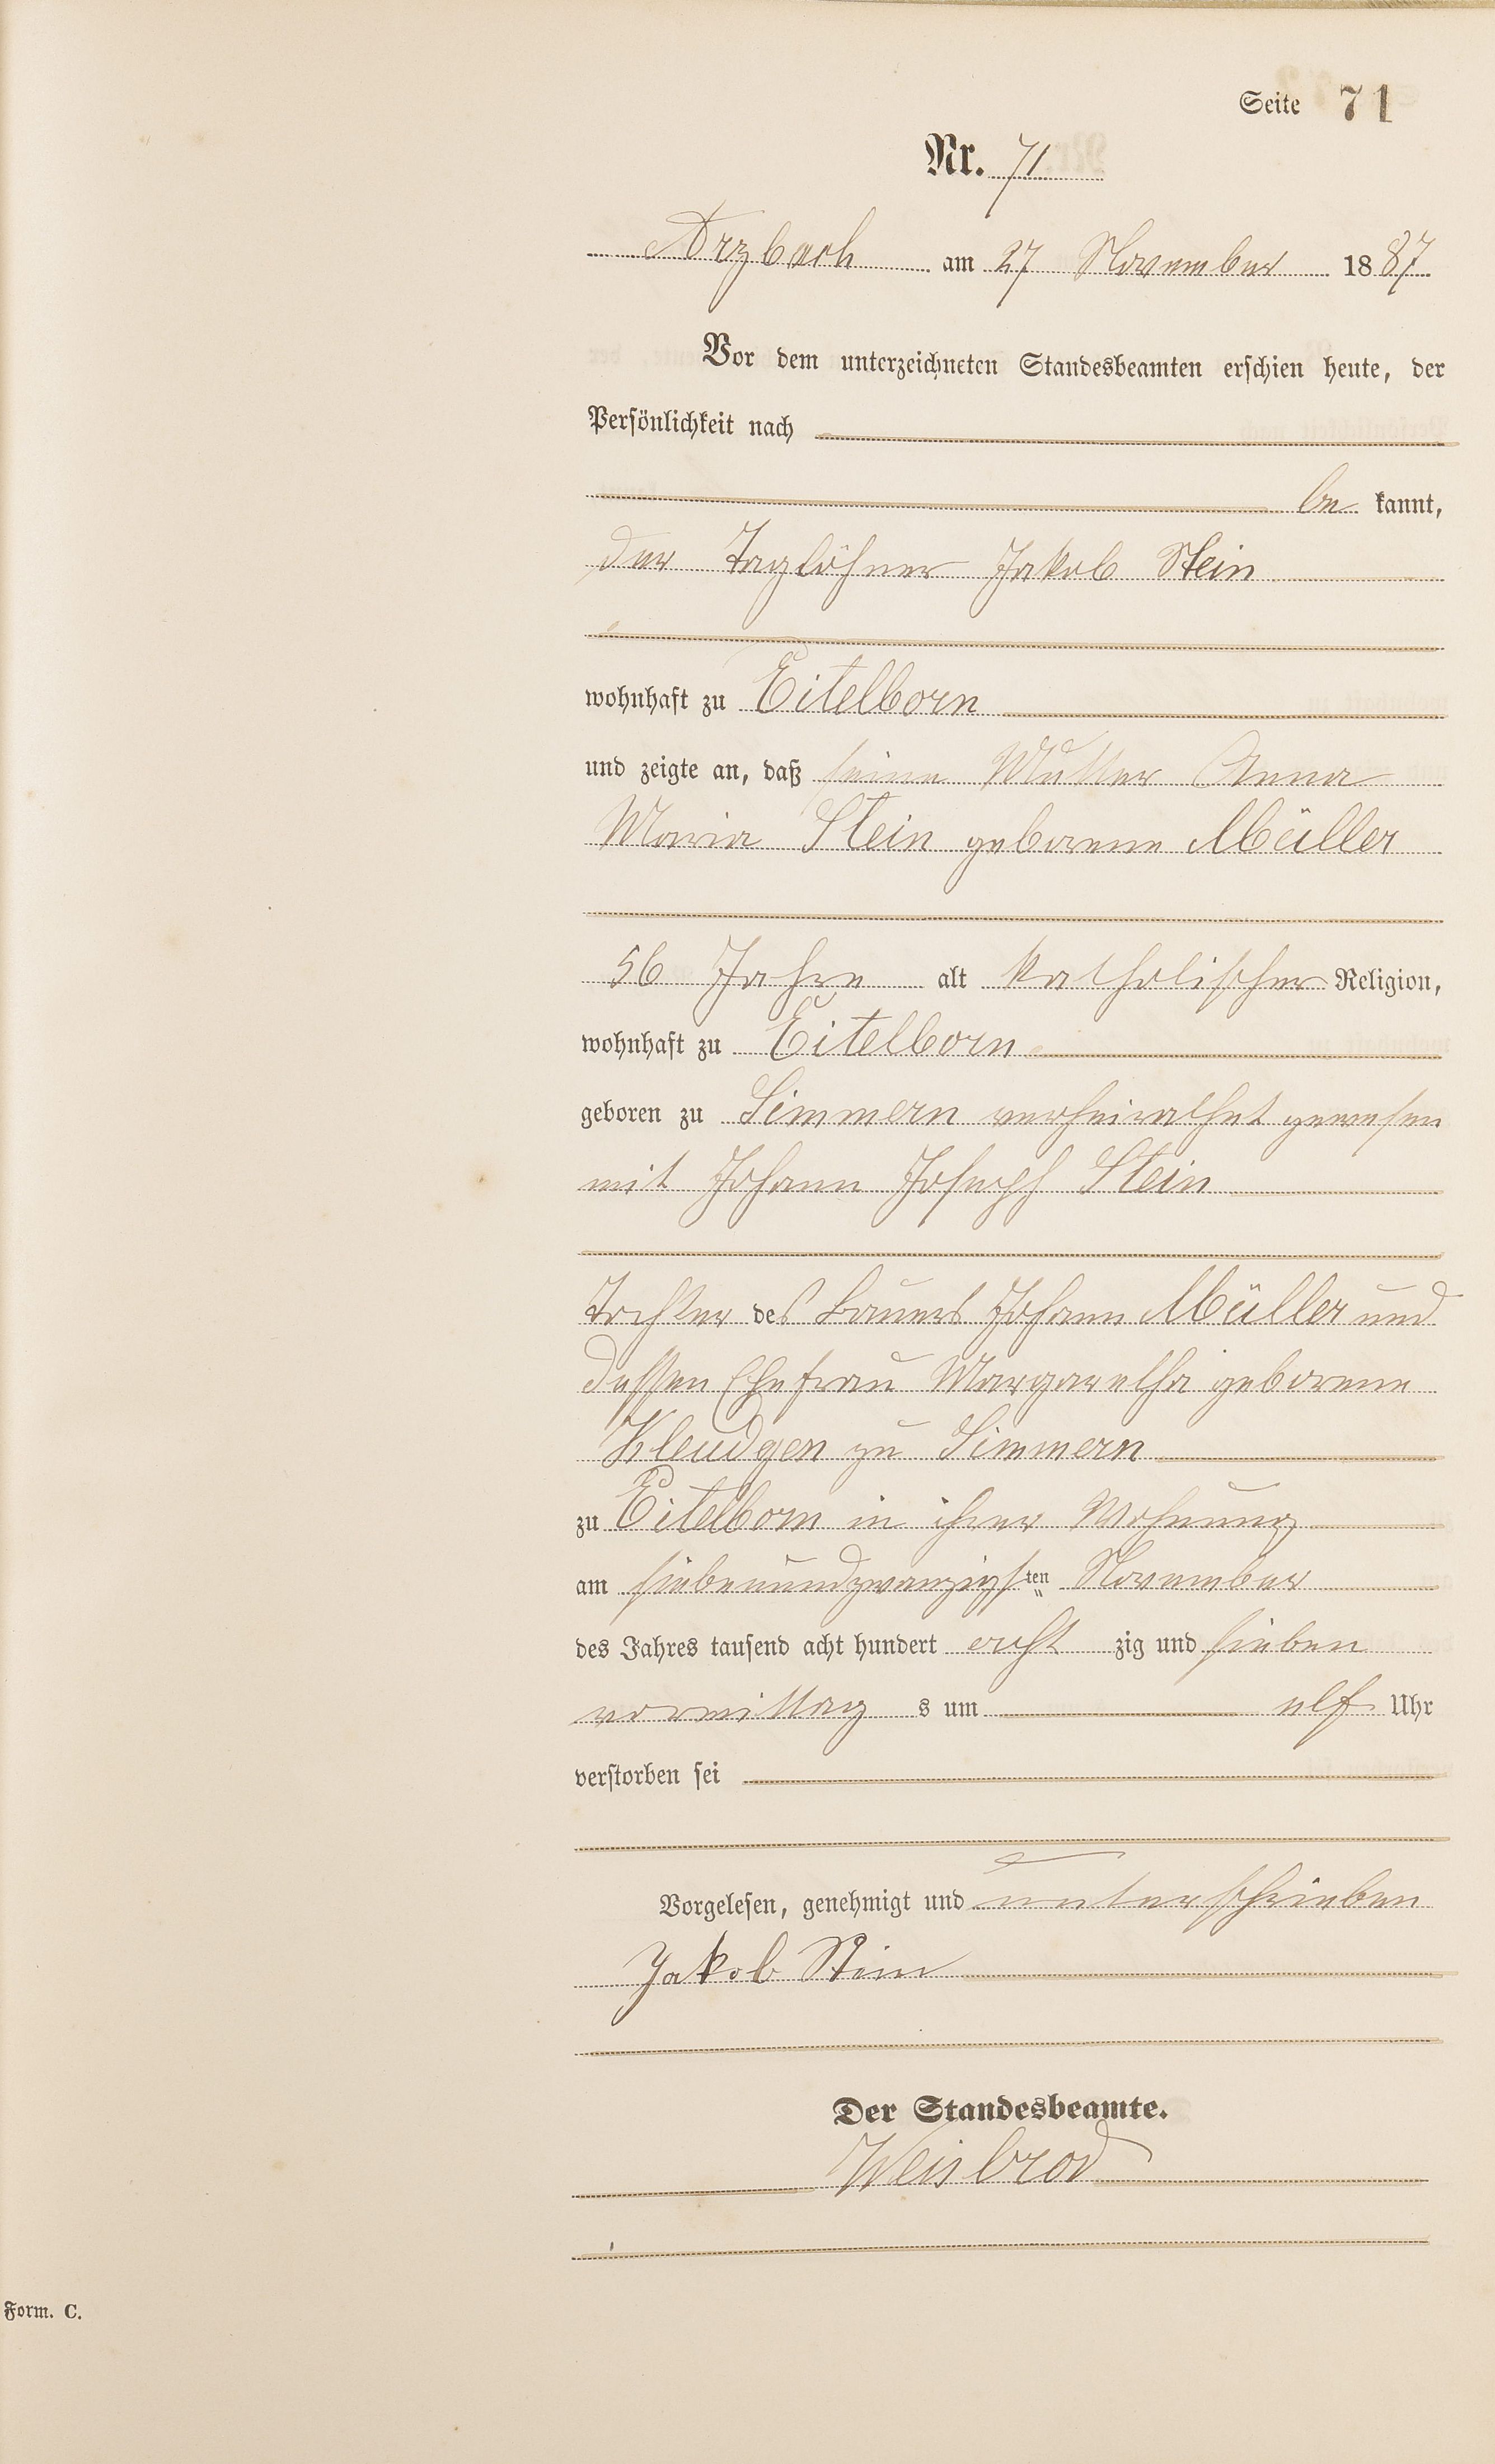 Seite 71
Nr. 71
Arzbach am 27 November 1887
Vor dem unterzeichneten Standesbeamten erschien heute, der
Persönlichkeit nach
be kannt,
der Taglöhner Jakob Stein
wohnhaft zu Eitelborn
und zeigte an, daß seine Mutter Anna
Maria Stein geborene Müller
56 Jahre alt katholischer Religion,
wohnhaft zu Eitelborn
geboren zu Simmern verheirathet gewesen
mit Johann Joseph Stein
Tochter des Bauers Johann Müller und
dessen Ehefrau Margaretha geborene
Kleudgen zu Simmern
zu Eitelborn in ihrer Wohnung
am siebenundzwanzigsten November
des Jahres tausend acht hundert acht zig und sieben
vormittag s um elf Uhr
verstorben sei
Vorgelesen, genehmigt und unterschrieben
Jakob Stein
Der Standesbeamte.
Weisbrod
Form. C.